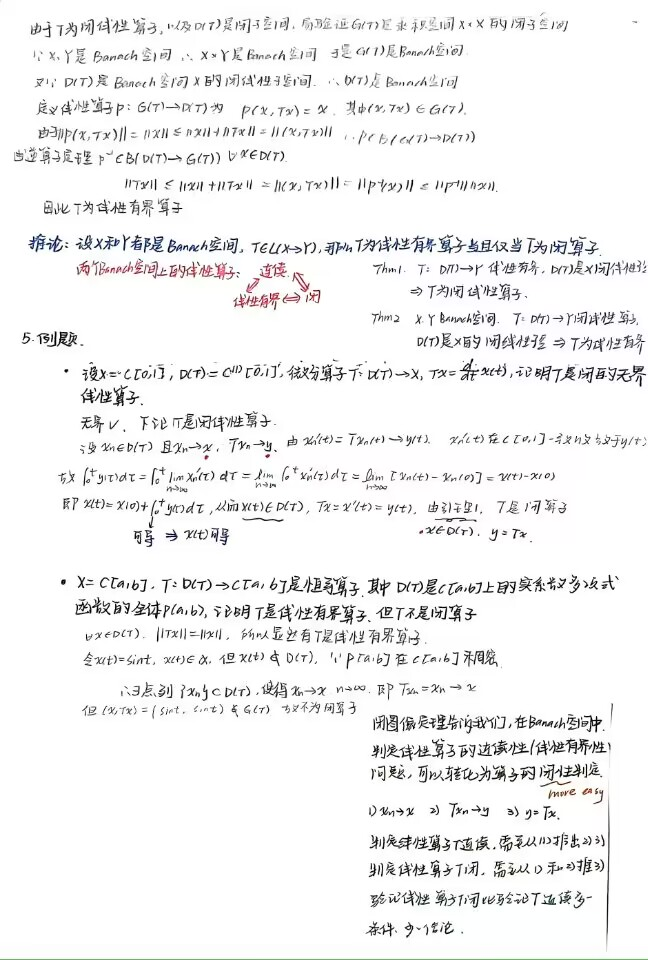 由于T为闭线性算子,以及D(T)是闭子空间,易验证G(T)是乘积空间X×X的闭子空间
∵X,Y是Banach空间 ∴X×Y是Banach空间 于是G(T)是Banach空间.
又∵D(T)是Banach空间X的闭线性子空间. ∴D(T)是Banach空间
定义线性算子p: G(T)→D(T)为 p(x,Tx)=x. 其中(x,Tx)∈G(T).
由于||p(x,Tx)||=||x||≤||x||+||Tx||=||(x,Tx)|| ∴p∈B(G(T)→D(T))
由逆算子定理 p⁻¹∈B(D(T)→G(T)) ∀x∈D(T).
||Tx||≤||x||+||Tx||=||(x,Tx)||=||p⁻¹(x)||≤||p⁻¹||||x||.
因此T为线性有界算子
推论: 设X和Y都是Banach空间, T∈L(X→Y), 那么T为线性有界算子当且仅当T为闭算子.
两个Banach空间上的线性算子: 连续
线性有界⇔闭
Thm1. T: D(T)→Y 线性有界, D(T)是X闭线性子空
⇒T为闭线性算子.
Thm2 X.Y Banach空间. T: D(T)→Y闭线性算子,
D(T)是X的闭线性子空 ⇒T为线性有界
5.例题.
• 设X=C[0,1], D(T)=C⁽¹⁾[0,1], 微分算子T: D(T)→X, Tx=d/dt x(t), 证明T是闭的无界
线性算子.
无界√. 下证T是闭线性算子.
设xn∈D(T)且xn→x, Txn→y. 由xn'(t)=Txn(t)→y(t). xn'(t)在C[0,1]一致收敛于y(t)
故∫₀ᵗy(τ)dτ=∫₀ᵗlim n→∞ xn'(τ)dτ=lim n→∞ ∫₀ᵗxn'(τ)dτ=lim n→∞ [xn(t)-xn(0)]=x(t)-x(0)
即x(t)=x(0)+∫₀ᵗy(τ)dτ, 从而x(t)∈D(T), Tx=x'(t)=y(t). 由引理1, T是闭算子
可导 ⇒x(t)可导
x∈D(T). y=Tx.
• X=C[a,b]. T: D(T)→C[a,b]是恒等算子. 其中D(T)是C[a,b]上的实系数多项式
函数的全体P(a,b), 证明T是线性有界算子. 但T不是闭算子
∀x∈D(T). ||Tx||=||x||, 所以显然有T是线性有界算子.
令x(t)=sint, x(t)∈X. 但x(t)∉D(T), ∵P[a,b]在C[a,b]稠密.
∴∃点列{xn}⊂D(T), 使得xn→x n→∞. 即Txn=xn→x
但(x,Tx)=(sint, sint)∉G(T) 故不为闭算子
闭图像定理告诉我们, 在Banach空间中.
判定线性算子的连续性/线性有界性
问题, 可以转化为算子的闭性判定.
more easy
1)xn→x 2) Txn→y 3) y=Tx.
判定线性算子T连续, 需要从1)推出2)3)
判定线性算子T闭, 需要从1)和2)推3)
验证线性算子T闭比验证T连续多一
条件. 少一结论.